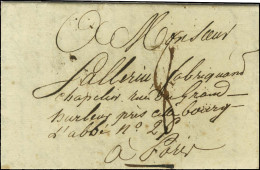 A Monsieur
Pellerin fabriquand
chapelie rue du Grand
hurleur pres le bourg
L'abbé n.º 28
à Paris